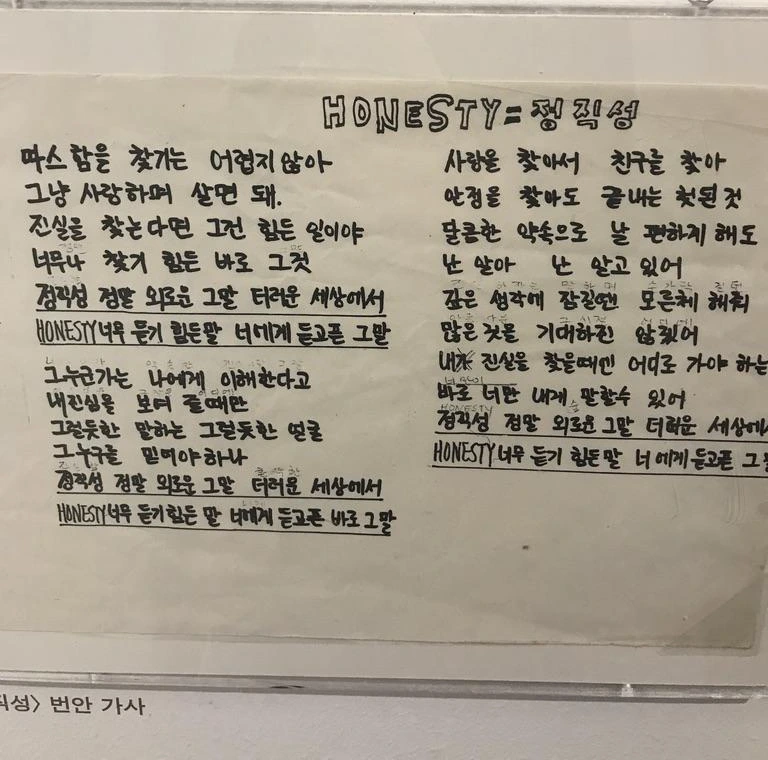 HONESTY=정직성
따스함을 찾기는 어렵지않아
그냥 사랑하며 살면 돼.
진실을 찾는다면 그건 힘든 일이야
너무나 찾기 힘든 바로 그것
정직성 정말 외로운 그말 더러운 세상에서
HONESTY 너무 듣기 힘든말 너에게 듣고픈 그말
그누군가는 나에게 이해한다고
내진심을 보여 줄때만
그럴듯한 말하는 그럴듯한 얼굴
그누구를 믿어야하나
정직성 정말 외로운 그말 더러운 세상에서
HONESTY 너무 듣기힘든 말 너에게 듣고픈 바로 그말
사랑을 찾아서 친구를 찾아
안정을 찾아도 끝내는 헛된것
달콤한 약속으로 날 편하게 해도
난 알아 난 알고 있어
깊은 생각에 잠길땐 모른체 해줘
많은것을 기대하진 않겠어
내가 진실을 찾을때엔 어디로 가야 하는
바로 너만 내게 말할수 있어
정직성 정말 외로운 그말 더러운 세상에서
HONESTY 너무 듣기 힘든말 너에게 듣고픈 그
직성> 번안 가사